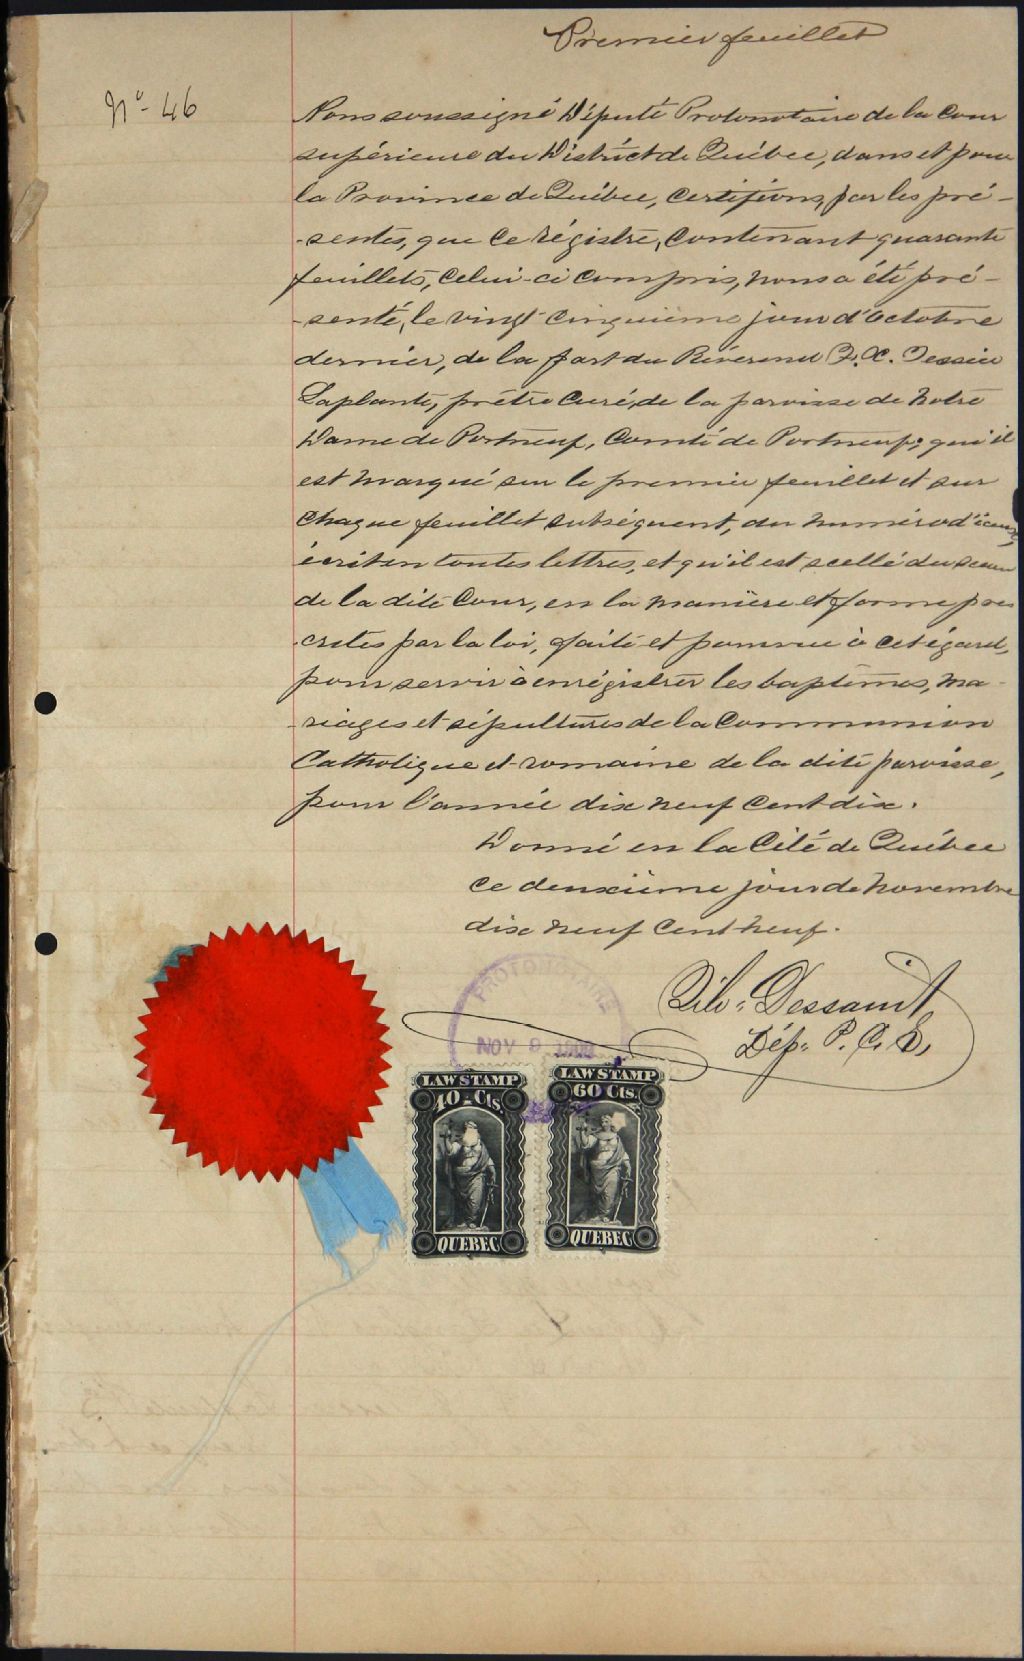 Premier feuillet
No. 46
Nous soussigné Député Protonotaire de la Cour
supérieure du District de Québec, dans et pour
la Province de Québec, Certifions, par les pré-
-sentes, que Ce régistre, Contenant quarante
feuillets, Celui-ci Compris, nous a été pré-
-senté, le vingt cinquième jour d'Octobre
dernier, de la part du Révérend F. X. Tessier
Laplante, prêtre Curé, de la paroisse de Notre
Dame de Portneuf, Comté de Portneuf; qu'il
est marqué sur le premier feuillet et sur
Chaque feuillet subséquent, du numéro d'iceux,
écrit en toutes lettres, et qu'il est scellé du sceau
de la dite Cour, en la manière et forme pres
-crites par la loi, faite et pourvue à cet égard,
pour servir à enrégistrer les baptêmes, ma-
-riages et sépultures de la Communion
Catholique et romaine de la dite paroisse,
pour l'année dix neuf Cent dix.
Donné en la Cité de Québec
Ce deuxième jour de Novembre
dix neuf Cent neuf.
Dessaint
Dép. P. C. S.
PROTONOTAIRE
NOV 9 1909
LAW STAMP
40-Cts.
QUEBEC
LAW STAMP
60 Cts.
QUEBEC